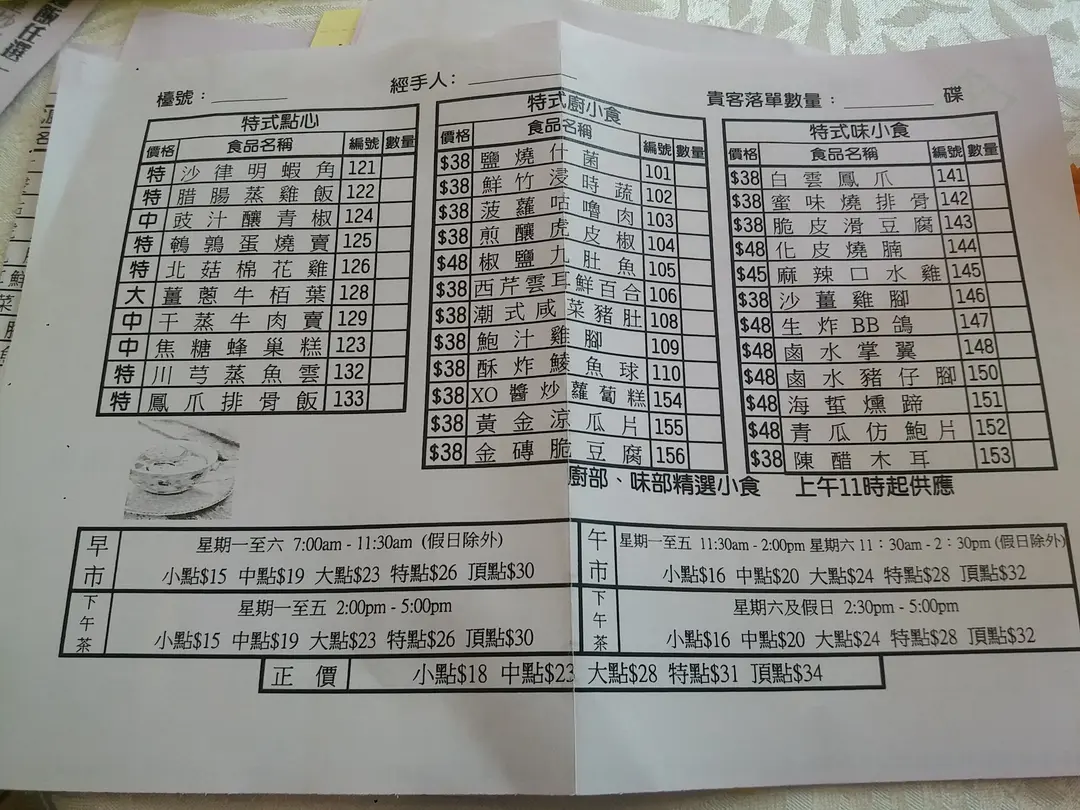 飯任選
檯號：
經手人：
貴客落單數量： 碟
特式點心
價格 食品名稱 編號 數量
特 沙律明蝦角 121
特 腊腸蒸雞飯 122
中 豉汁釀青椒 124
特 鵪鶉蛋燒賣 125
特 北菇棉花雞 126
大 薑蔥牛栢葉 128
中 干蒸牛肉賣 129
中 焦糖蜂巢糕 123
特 川芎蒸魚雲 132
特 鳳爪排骨飯 133
特式廚小食
價格 食品名稱 編號 數量
$38 鹽燒什菌 101
$38 鮮竹浸時蔬 102
$38 菠蘿咕嚕肉 103
$38 煎釀虎皮椒 104
$48 椒鹽九肚魚 105
$38 西芹雲耳鮮百合 106
$38 潮式咸菜豬肚 108
$38 鮑汁雞腳 109
$38 酥炸鯪魚球 110
$38 XO醬炒蘿蔔糕 154
$38 黃金涼瓜片 155
$38 金磚脆豆腐 156
特式味小食
價格 食品名稱 編號 數量
$38 白雲鳳爪 141
$38 蜜味燒排骨 142
$38 脆皮滑豆腐 143
$48 化皮燒腩 144
$45 麻辣口水雞 145
$38 沙薑雞腳 146
$48 生炸BB鴿 147
$48 鹵水掌翼 148
$48 鹵水豬仔腳 150
$48 海蜇燻蹄 151
$48 青瓜仿鮑片 152
$38 陳醋木耳 153
廚部、味部精選小食 上午11時起供應
早市 星期一至六 7:00am - 11:30am (假日除外)
小點$15 中點$19 大點$23 特點$26 頂點$30
午市 星期一至五 11:30am - 2:00pm 星期六 11：30am - 2：30pm (假日除外)
小點$16 中點$20 大點$24 特點$28 頂點$32
下午茶 星期一至五 2:00pm - 5:00pm
小點$15 中點$19 大點$23 特點$26 頂點$30
下午茶 星期六及假日 2:30pm - 5:00pm
小點$16 中點$20 大點$24 特點$28 頂點$32
正價 小點$18 中點$23 大點$28 特點$31 頂點$34